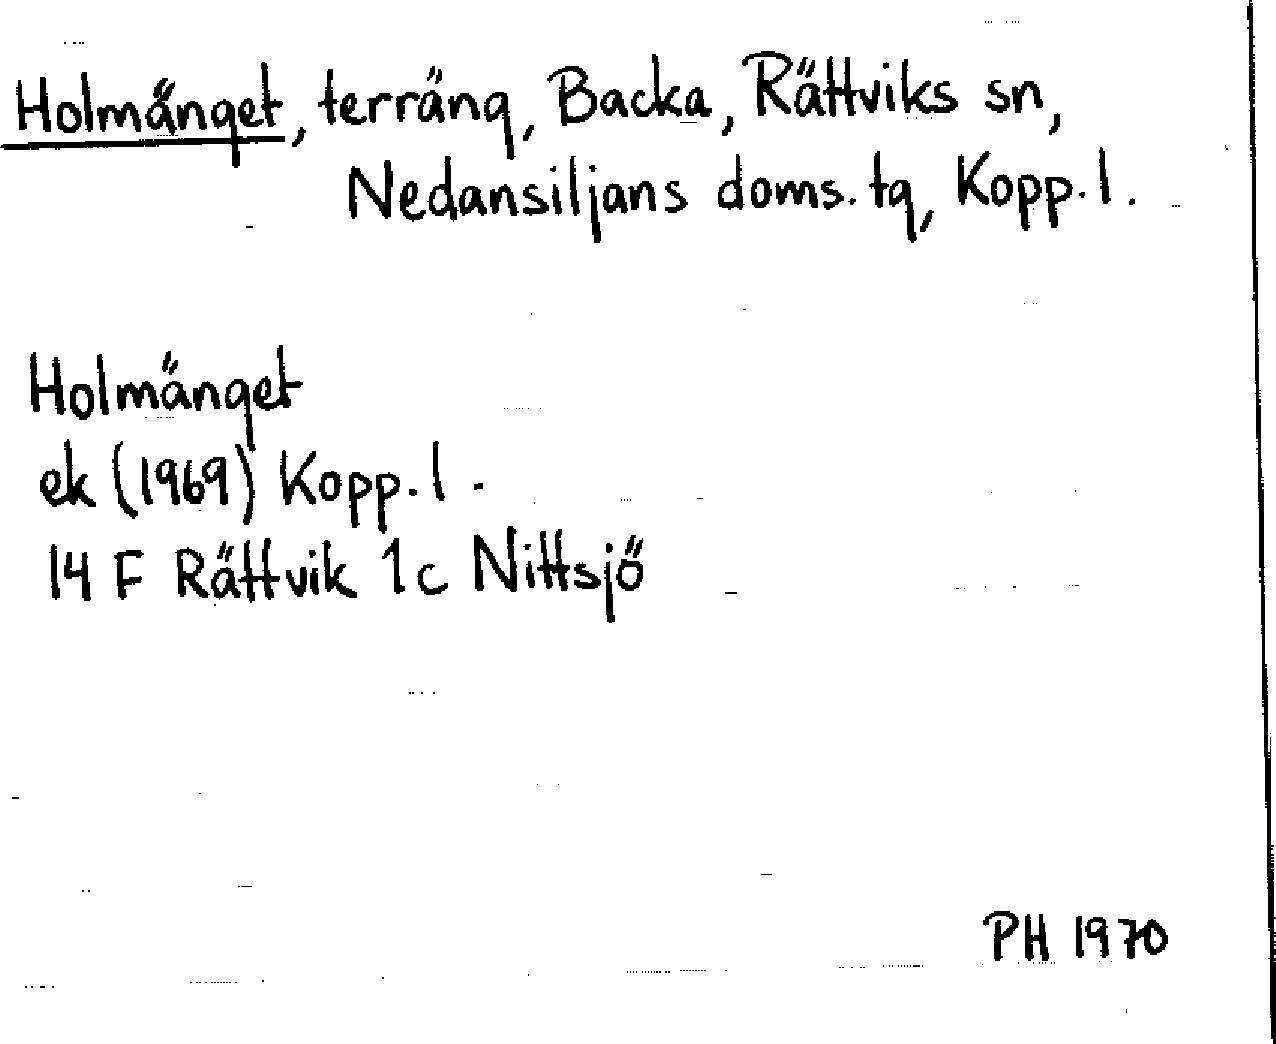 Holmänget, terräng, Backa, Rättviks sn,
Nedansiljans doms. tg, Kopp. l.
Holmänget
ek (1969) Kopp. l.
14 F Rättvik 1c Nittsjö
PH 1970